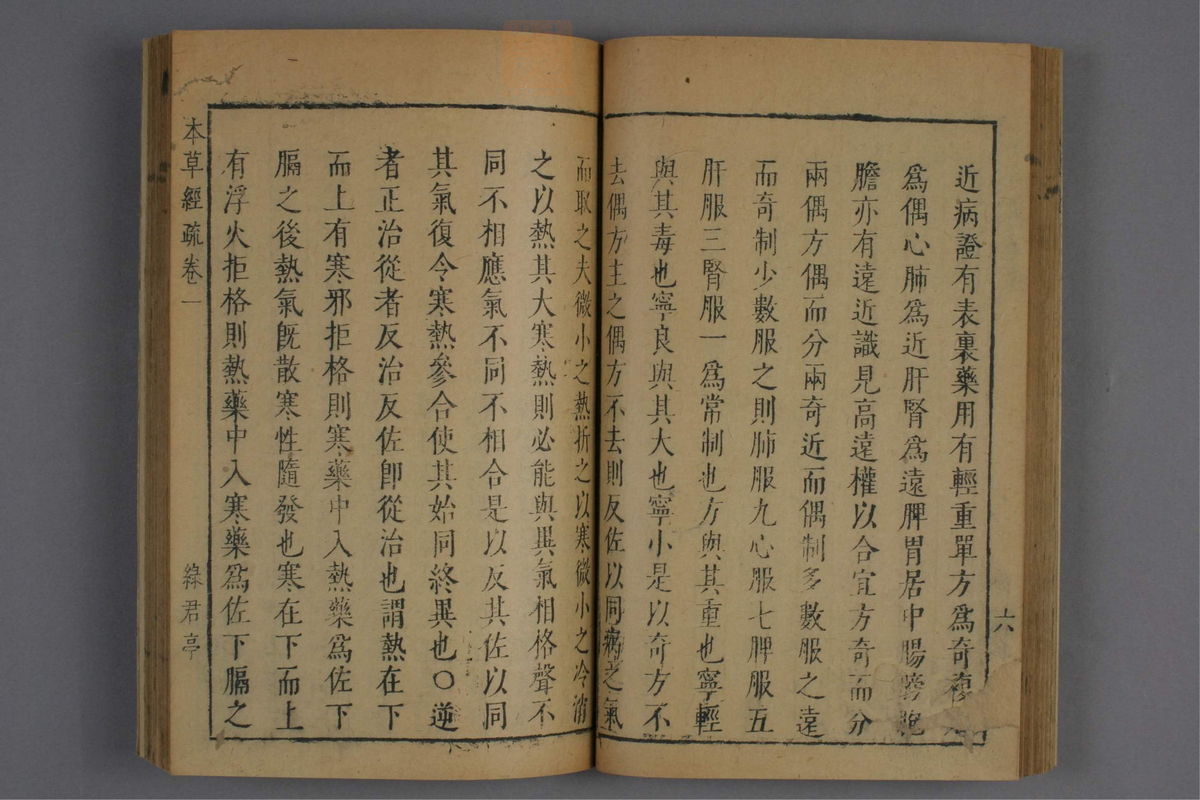 近病證有表裏藥用有輕重單方爲奇複
爲偶心肺爲近肝腎爲遠脾胃居中腸膀胞
膽亦有遠近識見高遠權以合宜方奇而分
兩偶方偶而分兩奇近而偶制多數服之遠
而奇制少數服之則肺服九心服七脾服五
肝服三腎服一爲常制也方與其重也寧輕
與其毒也寧良與其大也寧小是以奇方不
去偶方主之偶方不去則反佐以同病之氣
而取之夫微小之熱折之以寒微小之冷消
之以熱其大寒熱則必能與異氣相格聲不
同不相應氣不同不相合是以反其佐以同
其氣復令寒熱參合使其始同終異也〇逆
者正治從者反治反佐卽從治也謂熱在下
而上有寒邪拒格則寒藥中入熱藥爲佐下
膈之後熱氣旣散寒性隨發也寒在下而上
有浮火拒格則熱藥中入寒藥爲佐下膈之
六
本草經疏卷一
綠君亭